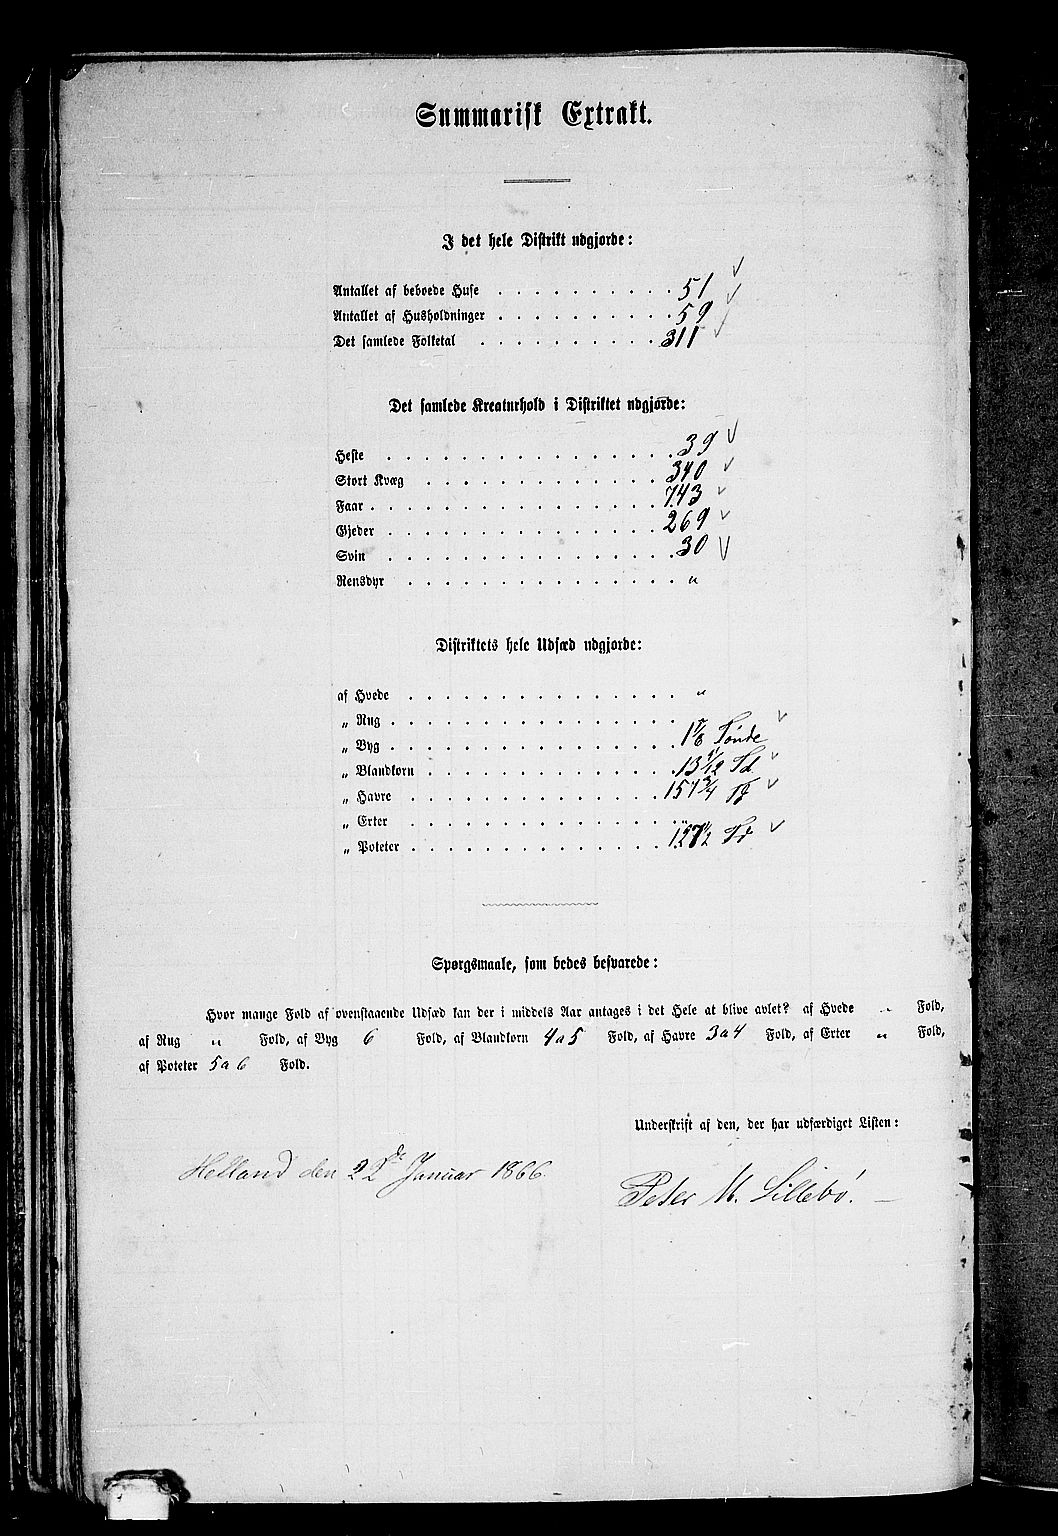 Summarisk Extrakt.
I det hele Distrikt udgjorde:
Antallet af beboede Huse . . . . . . . . . . 51
Antallet af Husholdninger . . . . . . . . . . 59
Det samlede Folketal . . . . . . . . . . 311
Det samlede Kreaturhold i Distriktet udgjorde:
Heste . . . . . . . . . . 39
Stort Kvæg . . . . . . . . . . 340
Faar . . . . . . . . . . 743
Gjeder . . . . . . . . . . 269
Svin . . . . . . . . . . 30
Rensdyr . . . . . . . . . . "
Distriktets hele Udsæd udgjorde:
af Hvede . . . . . . . . . . "
„ Rug . . . . . . . . . . "
„ Byg . . . . . . . . . . 1 7/8 Tønde
„ Blandkorn . . . . . . . . . . 13 1/12 Td
„ Havre . . . . . . . . . . 151 3/4 Td
„ Erter . . . . . . . . . . "
„ Poteter . . . . . . . . . . 127 1/2 Td
Spørgsmaale, som bedes besvarede:
Hvor mange Fold af ovenstaaende Udsæd kan der i middels Aar antages i det Hele at blive avlet? af Hvede " Fold,
af Rug " Fold, af Byg 6 Fold, af Blandkorn 4 a 5 Fold, af Havre 3 a 4 Fold, af Erter " Fold,
af Poteter 5 a 6 Fold.
Underskrift af den, der har udfærdiget Listen:
Helland den 22de Januar 1866
Peter M. Lillebø.